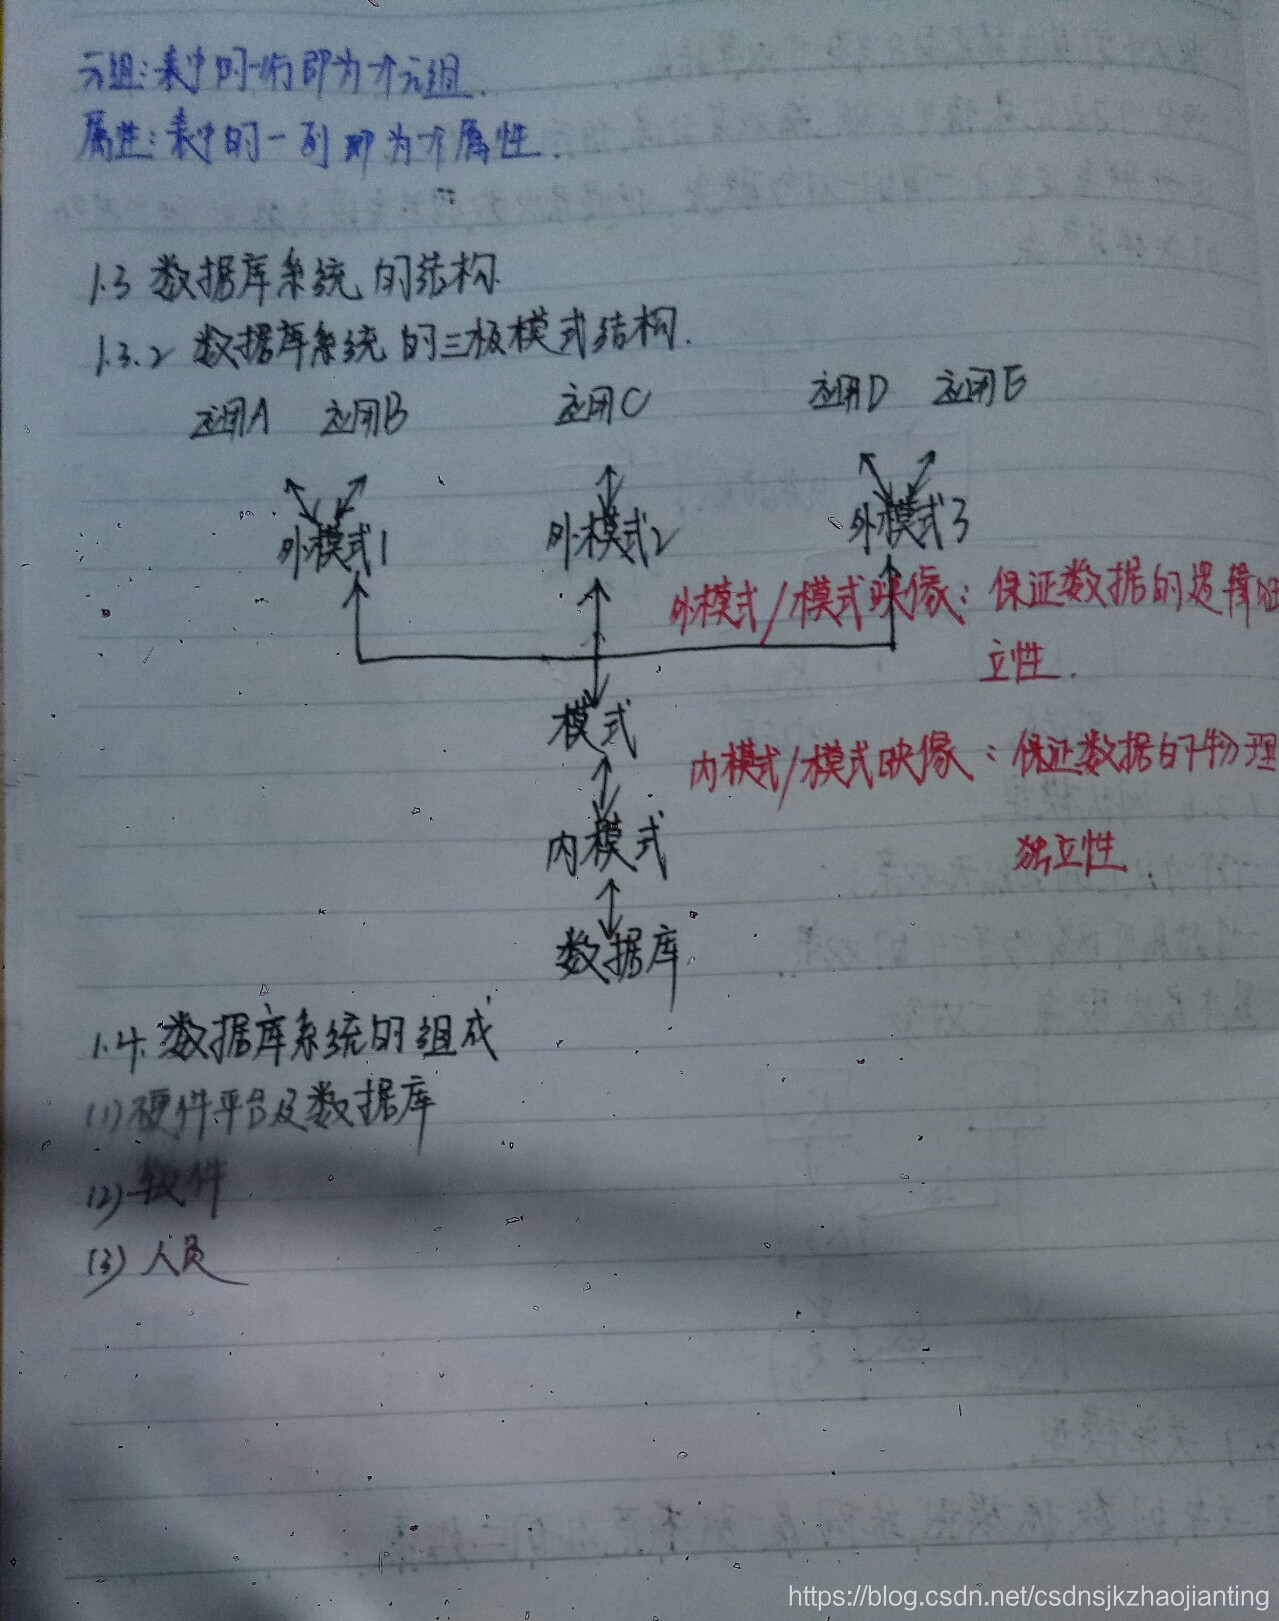 元组:表中的一行即为一个元组.
属性:表中的一列即为一个属性.
1.3 数据库系统的结构
1.3.2 数据库系统的三极模式结构.
应用A 应用B 应用C 应用D 应用E
外模式1 外模式2 外模式3
外模式/模式映像:保证数据的逻辑独
立性.
模式
内模式/模式映像:保证数据的物理
独立性.
内模式
数据库
1.4.数据库系统的组成
(1)硬件平台及数据库
(2)软件
(3)人员
https://blog.csdn.net/csdnsjkzhaojianting